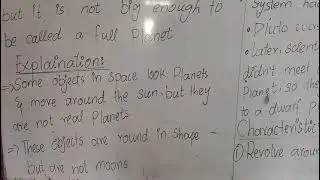 but it is not big enough to
be called a full Planet
Explaination:
⇒ Some objects in space look Planets
& move around the sun, but they
are not real Planets
⇒ These objects are round in shape –
but are not moons
System ha
• Pluto was
• Later, scient
didn't meet
Planet, so the
to a dwarf P
Characteristic
① Revolve arou